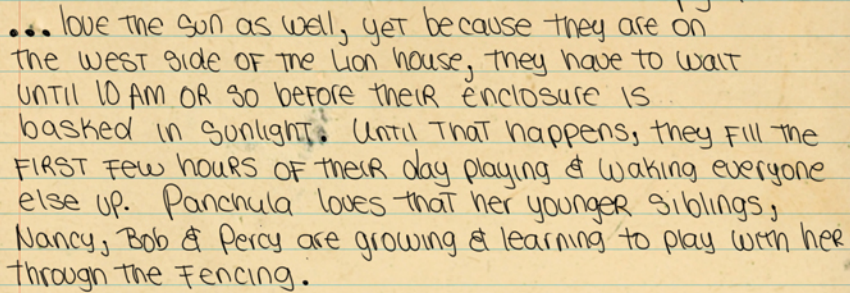 ... love the sun as well, yet because they are on
the west side of the Lion house, they have to wait
until 10 AM or so before their enclosure is
basked in sunlight. Until that happens, they fill the
first few hours of their day playing & waking everyone
else up. Panchula loves that her younger siblings,
Nancy, Bob & Percy are growing & learning to play with her
through the fencing.